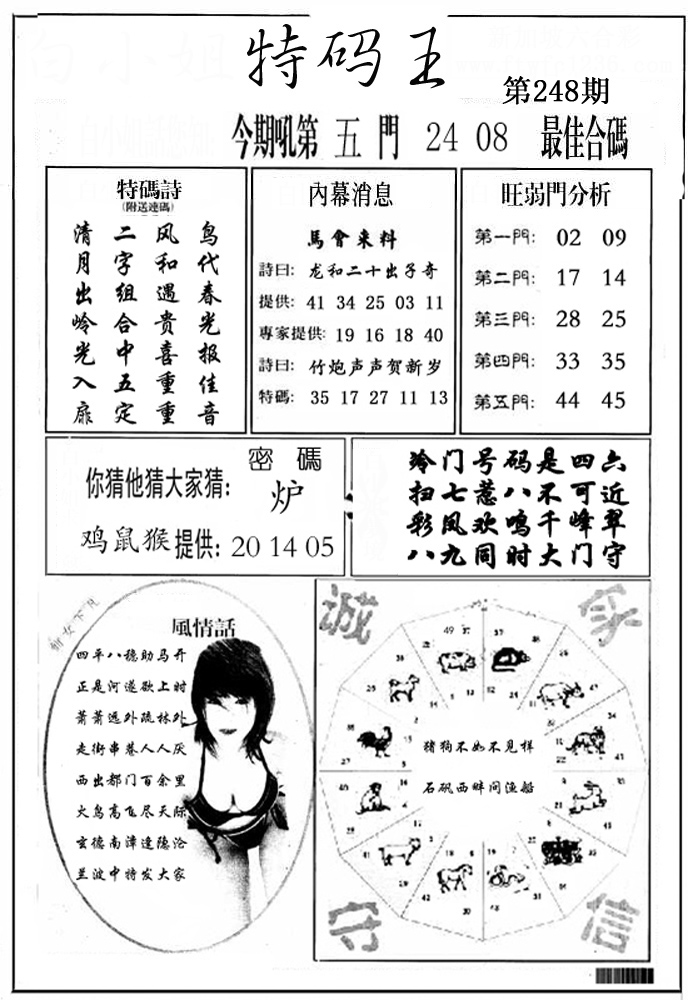 特码王
第248期
今期吼第 五 門 24 08 最佳合碼
特碼詩
(附送連碼)
清 二 风 鸟
月 字 和 代
出 组 遇 春
岭 合 貴 光
光 中 喜 报
入 五 重 佳
扉 定 重 音
內幕消息
馬會来料
詩曰: 龙和二十出子奇
提供: 41 34 25 03 11
專家提供: 19 16 18 40
詩曰: 竹炮声声贺新岁
特碼: 35 17 27 11 13
旺弱門分析
第一門: 02 09
第二門: 17 14
第三門: 28 25
第四門: 33 35
第五門: 44 45
密 碼
你猜他猜大家猜: 炉
鸡鼠猴 提供: 20 14 05
冷门号码是四六
扫七惹八不可近
彩凤欢鸣千峰翠
八九同时大门守
風情話
四平八稳助马开
正是河遂欲上时
萧萧远外疏林外
走街串巷人人厌
西出都门百余里
大鸟高飞尽天际
玄德南漳逢隐沦
兰波中特发大家
诚 家
猪狗不如不见样
石矶西畔问渔船
守 信